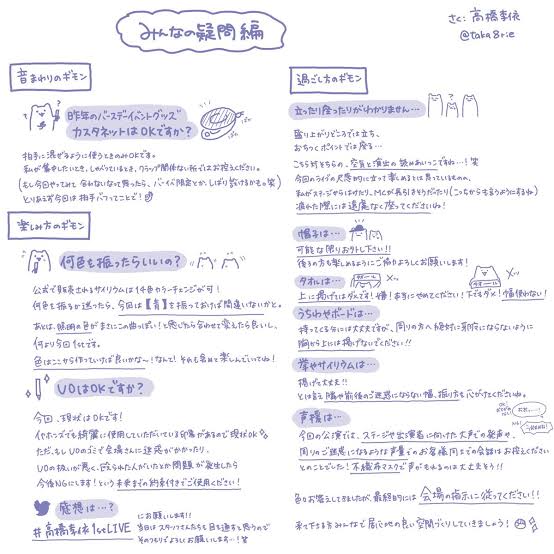 みんなの疑問編
さく:高橋李依
@taka8rie
音まわりのギモン
昨年のバースデーイベントグッズ
カスタネットはOKですか?
拍手に混ぜるように使うときのみOKです。
私が集中したいとき、しゃべっているとき、クラップ関係ない所ではお控えください。
(もし今回やってみて 合わないなって思ったら、バーイベ限定とか、しばり設けるかも。笑)
とりあえず今回は拍手パフってことで!
楽しみ方のギモン
何色を振ったらいいの?
公式で販売されるサイリウムは14色カラーチェンジが可!
何色を振るか迷ったら、今回は【青】を振っておけば間違いないかと。
あとは、照明の色がまさにこの曲っぽい!と感じたら合わせて変えたら良いし、
何より今回1stです。
色はここから作っていけば良いかな〜!なんて!それも含めて楽しんでいてね!
UOはOKですか?
今回、現状はOKです!
イヤホンズでも綺麗に使用していただいている印象があるので現状OK
ただ、もしUOのゴミで会場さんに迷惑がかかったり、
UOの扱いが悪く、殴られた人がいたとか問題が発生したら
今後NGにします!という未来までの約束付きでご使用ください!
感想は…?
#高橋李依1stLIVE
にお願いします!!
当日はスタッフさんたちも目を通すと思うので
そのつもりでよろしくお願いします…!笑
過ごし方のギモン
立ったり座ったりがわかりません…
盛り上がりどころでは立ち、
おちつくポイントでは座る…
こちらもそちらの、空気と演出の読みあいっこですね…!笑
今回のライブの尺感的に立って楽しめるとは思っているものの、
私がステージからはけたり、MCが長引きそうだったり(こっちからも言うようにするね)
疲れた際には遠慮なく座ってくださいね!
帽子は…
可能な限りお外し下さい!!
後ろの方も楽しめるようにご協力よろしくお願いします!
タオルは…
タオル
メッ
タオル
メッ
上に掲げてはダメです!嫌!本当にやめてください!下でもダメ!幅使わない!
うちわやボードは…
持ってくる分には大丈夫ですが、周りの方へ絶対に邪魔にならないように
胸から上には掲げないでください!!
拳やサイリウムは…
掲げて大丈夫!!
とは言え 隣や前後のご迷惑にならない幅、振り方を心がけてくださいね。
声援は…
今回の公演では、ステージや出演者に向けた大声での発声や、
周りのご迷惑になるような声量でのお客様同士での会話はお控えください
とのことでした!不織布マスクで声がもれるのは大丈夫そう!!
色々お答えしてきましたが、最終的には会場の指示に従ってください!!
来て下さる方みんなで居心地の良い空間づくりしていきましょう!